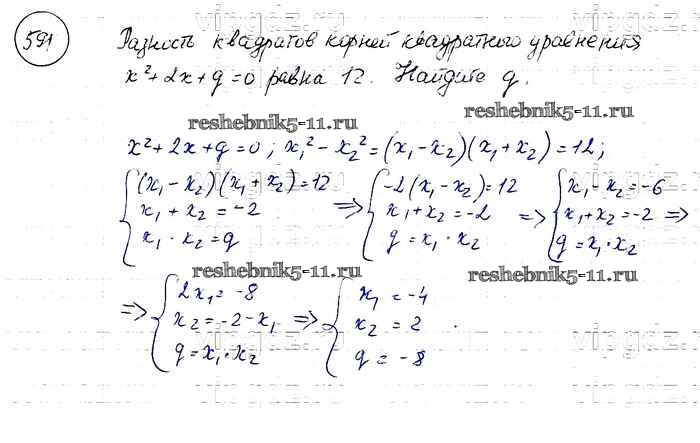 591
Разность квадратов корней квадратного уравнения
x² + 2x + q = 0 равна 12. Найдите q.
reshebnik5-11.ru
reshebnik5-11.ru
x² + 2x + q = 0; x₁² - x₂² = (x₁ - x₂)(x₁ + x₂) = 12;
{ (x₁ - x₂)(x₁ + x₂) = 12 => { -2(x₁ - x₂) = 12 => { x₁ - x₂ = -6 =>
x₁ + x₂ = -2 x₁ + x₂ = -2 x₁ + x₂ = -2
x₁ · x₂ = q q = x₁ · x₂ q = x₁ · x₂
reshebnik5-11.ru
reshebnik5-11.ru
=> { 2x₁ = -8 => { x₁ = -4
x₂ = -2 - x₁ x₂ = 2 .
q = x₁ · x₂ q = -8